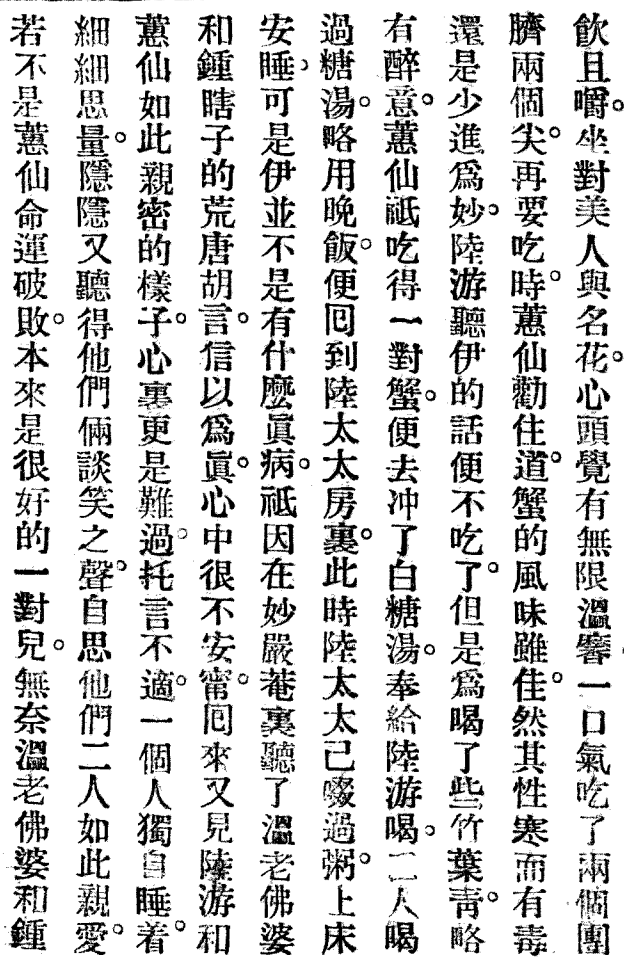 飲且嚼。坐對美人與名花。心頭覺有無限溫馨一口氣吃了兩個團
臍兩個尖。再要吃時。蕙仙勸住道。蟹的風味雖佳。然其性寒而有毒
還是少進爲妙。陸游聽伊的話便不吃了。但是爲喝了些竹葉靑。略
有醉意。蕙仙祗吃得一對蟹。便去冲了白糖湯。奉給陸游喝。二人喝
過糖湯。略用晚飯。便囘到陸太太房裏。此時陸太太已啜過粥。上床
安睡。可是伊並不是有什麼眞病。祗因在妙嚴菴裏聽了溫老佛婆
和鍾瞎子的荒唐胡言。信以爲眞。心中很不安甯。囘來又見陸游和
蕙仙如此親密的樣子。心裏更是難過。托言不適。一個人獨自睡着。
細細思量。隱隱又聽得他們倆談笑之聲。自思他們二人如此親愛。
若不是蕙仙命運破敗。本來是很好的一對兒。無奈溫老佛婆和鍾